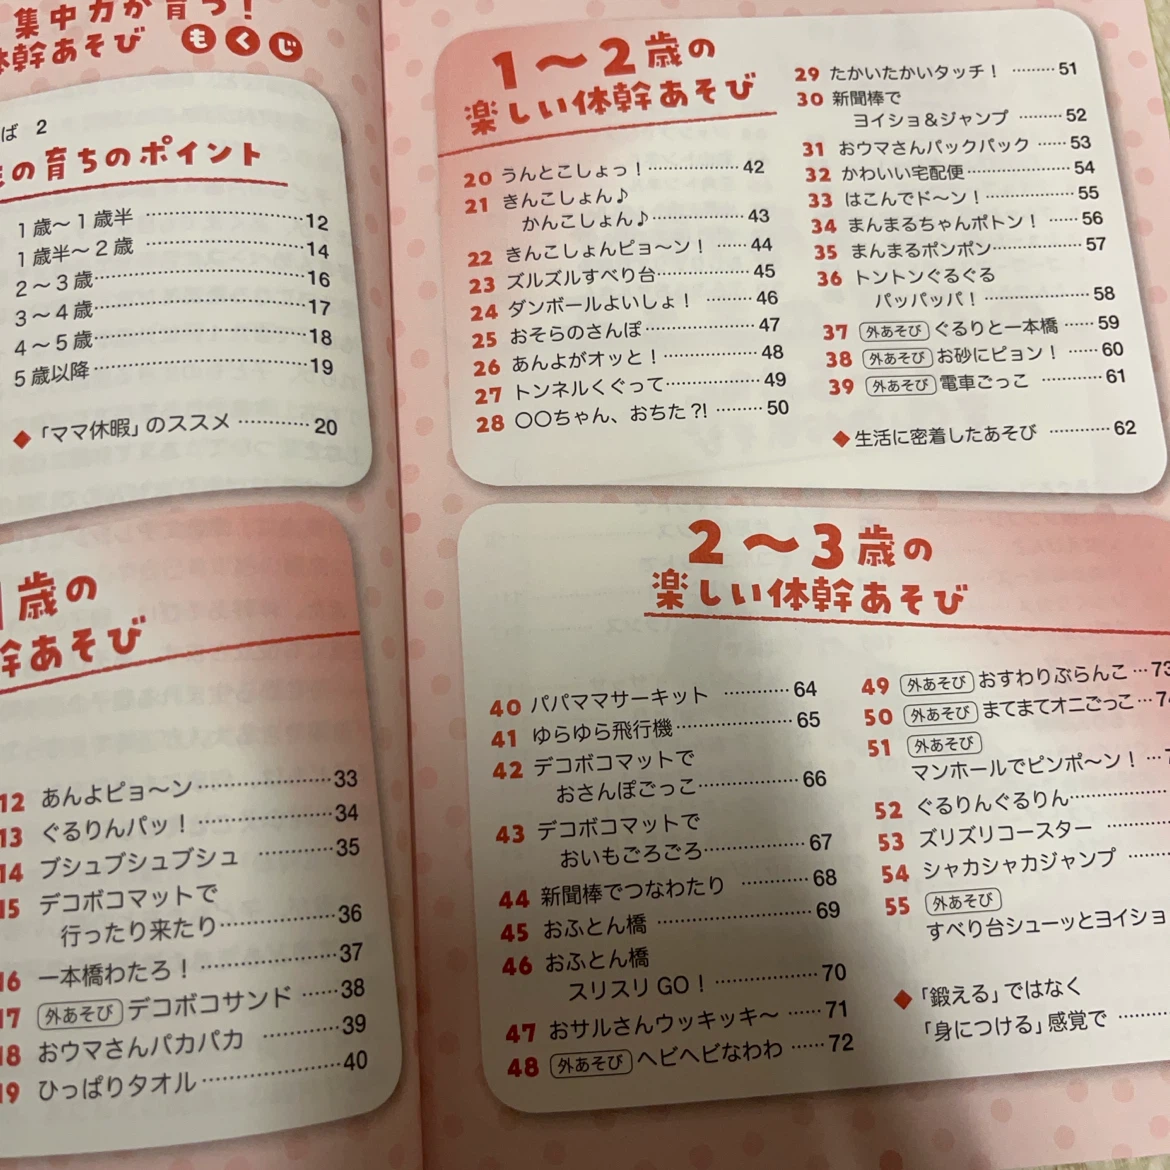 集中力が育つ！
体幹あそび もくじ
ば 2
の育ちのポイント
1歳～1歳半 …………………12
1歳半～2歳 …………………14
2～3歳…………………………16
3～4歳…………………………17
4～5歳…………………………18
5歳以降…………………………19
◆「ママ休暇」のススメ …………20
1歳の
幹あそび
12 あんよピョ～ン………………33
13 ぐるりんパッ！………………34
14 ブシュブシュブシュ …………35
15 デコボコマットで
行ったり来たり………………36
16 一本橋わたろ！………………37
17 外あそび デコボコサンド ……38
18 おウマさんパカパカ …………39
19 ひっぱりタオル………………40
1～2歳の
楽しい体幹あそび
20 うんとこしょっ！……………42
21 きんこしょん♪
かんこしょん♪……………43
22 きんこしょんピョ～ン！ ……44
23 ズルズルすべり台……………45
24 ダンボールよいしょ！ ………46
25 おそらのさんぽ………………47
26 あんよがオッと！……………48
27 トンネルくぐって……………49
28 〇〇ちゃん、おちた?! ………50
29 たかいたかいタッチ！ ………51
30 新聞棒で
ヨイショ＆ジャンプ ………52
31 おウマさんパックパック ……53
32 かわいい宅配便………………54
33 はこんでド～ン！……………55
34 まんまるちゃんポトン！ ……56
35 まんまるポンポン……………57
36 トントンぐるぐる
パッパッパ！………………58
37 外あそび ぐるりと一本橋 ……59
38 外あそび お砂にピョン！ ……60
39 外あそび 電車ごっこ …………61
◆生活に密着したあそび …………62
2～3歳の
楽しい体幹あそび
40 パパママサーキット …………64
41 ゆらゆら飛行機………………65
42 デコボコマットで
おさんぽごっこ……………66
43 デコボコマットで
おいもごろごろ……………67
44 新聞棒でつなわたり …………68
45 おふとん橋 ……………………69
46 おふとん橋
スリスリGO！………………70
47 おサルさんウッキッキ～ ……71
48 外あそび ヘビヘビなわわ ……72
49 外あそび おすわりぶらんこ …73
50 外あそび まてまてオニごっこ…74
51 外あそび
マンホールでピンポ～ン！ …
52 ぐるりんぐるりん……………
53 ズリズリコースター …………
54 シャカシャカジャンプ ………
55 外あそび
すべり台シューッとヨイショ
◆「鍛える」ではなく
「身につける」感覚で …………